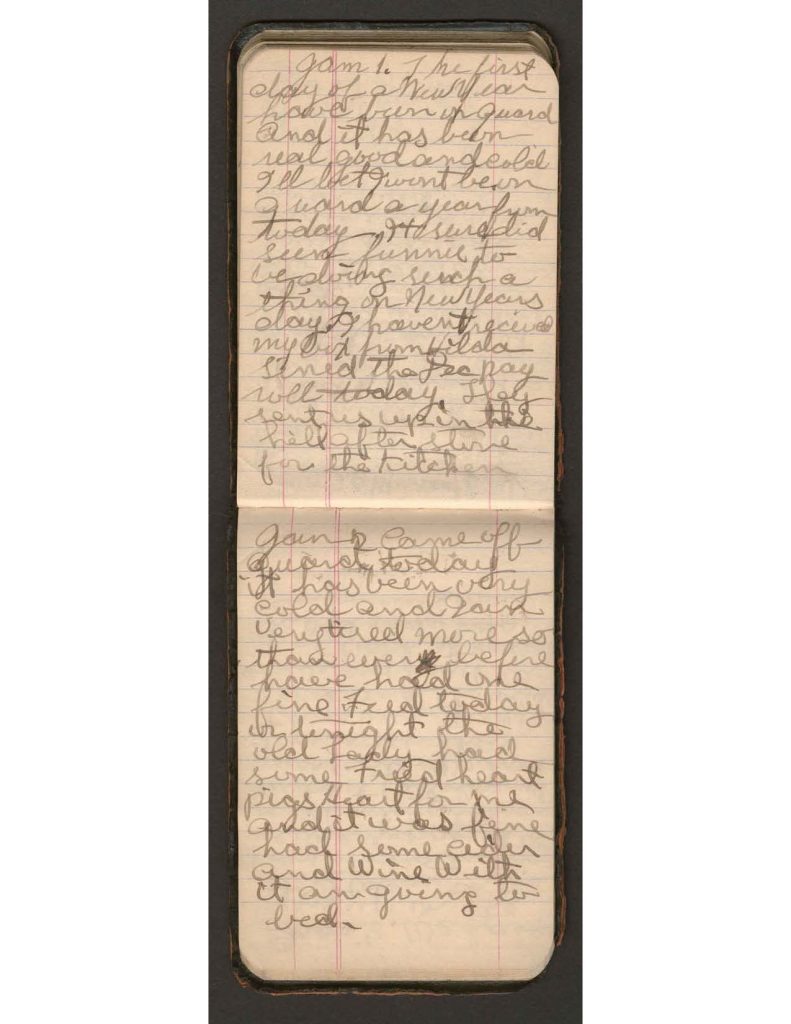 Jan 1. The first
day of a New Year
have been on guard
and it has been
real good and cold
I'll bet I wont be on
guard a year from
today. It sure did
seem funnie to
be doing such a
thing on New Years
day. I havent received
my box from Hilda
sined the Dec pay
roll today. They
sent us up in the
hill after stone
for the kitchen
Jan 2 Came off
guard today
it has been very
cold and I am
very tired more so
than ever before
have had one
fine Feed today
or tonight the
old Lady had
some Fried heart
pigs Heart for me
and it was fine
had some cider
and Wine With
it am going to
bed.